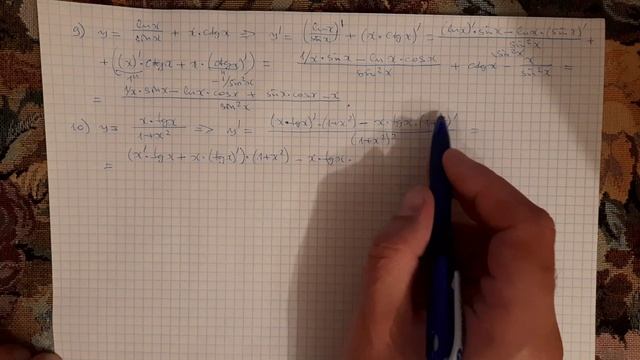 9) y = lnx/sinx + x·ctgx => y' = (lnx/sinx)' + (x·ctgx)' = ((lnx)'·sinx − lnx·(sinx)')/sin²x +
+ ((x)'·ctgx + x·(ctgx)') = (1/x·sinx − lnx·cosx)/sin²x + ctgx − x/sin²x =
1 −1/sin²x
= (1/x·sinx − lnx·cosx + sinx·cosx − x)/sin²x
10) y = x·tgx/(1+x²) => y' = ((x·tgx)'·(1+x²) − x·tgx·(1+ )'/(1+x²)² =
= (x'·tgx + x·(tgx)')·(1+x²) − x·tgx·